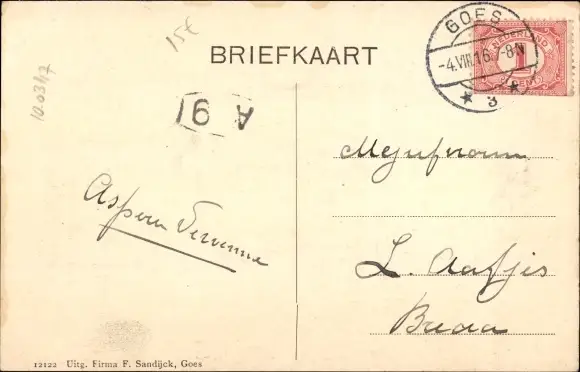 15€
BRIEFKAART
GOES
-4.VIII.16. -8N
3
NEDERLAND
1
CENT
100347
A 91
Mejufvrouw
L. Aafjes
Breda
12122 Uitg. Firma F. Sandijck, Goes